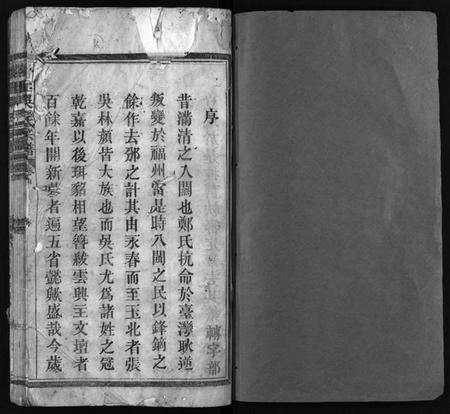 序
昔滿清之入關也鄭氏抗命於臺灣耿逆
叛變於福州當是時八閩之民以鋒鏑之
餘作去鄉之計其由永春而至玉北者張
吳林顏皆大族也而吳氏尤為諸姓之冠
乾嘉以後珥貂相望簪紱雲興主文壇者
百餘年開新墓者遍五省懿歟盛哉今歲